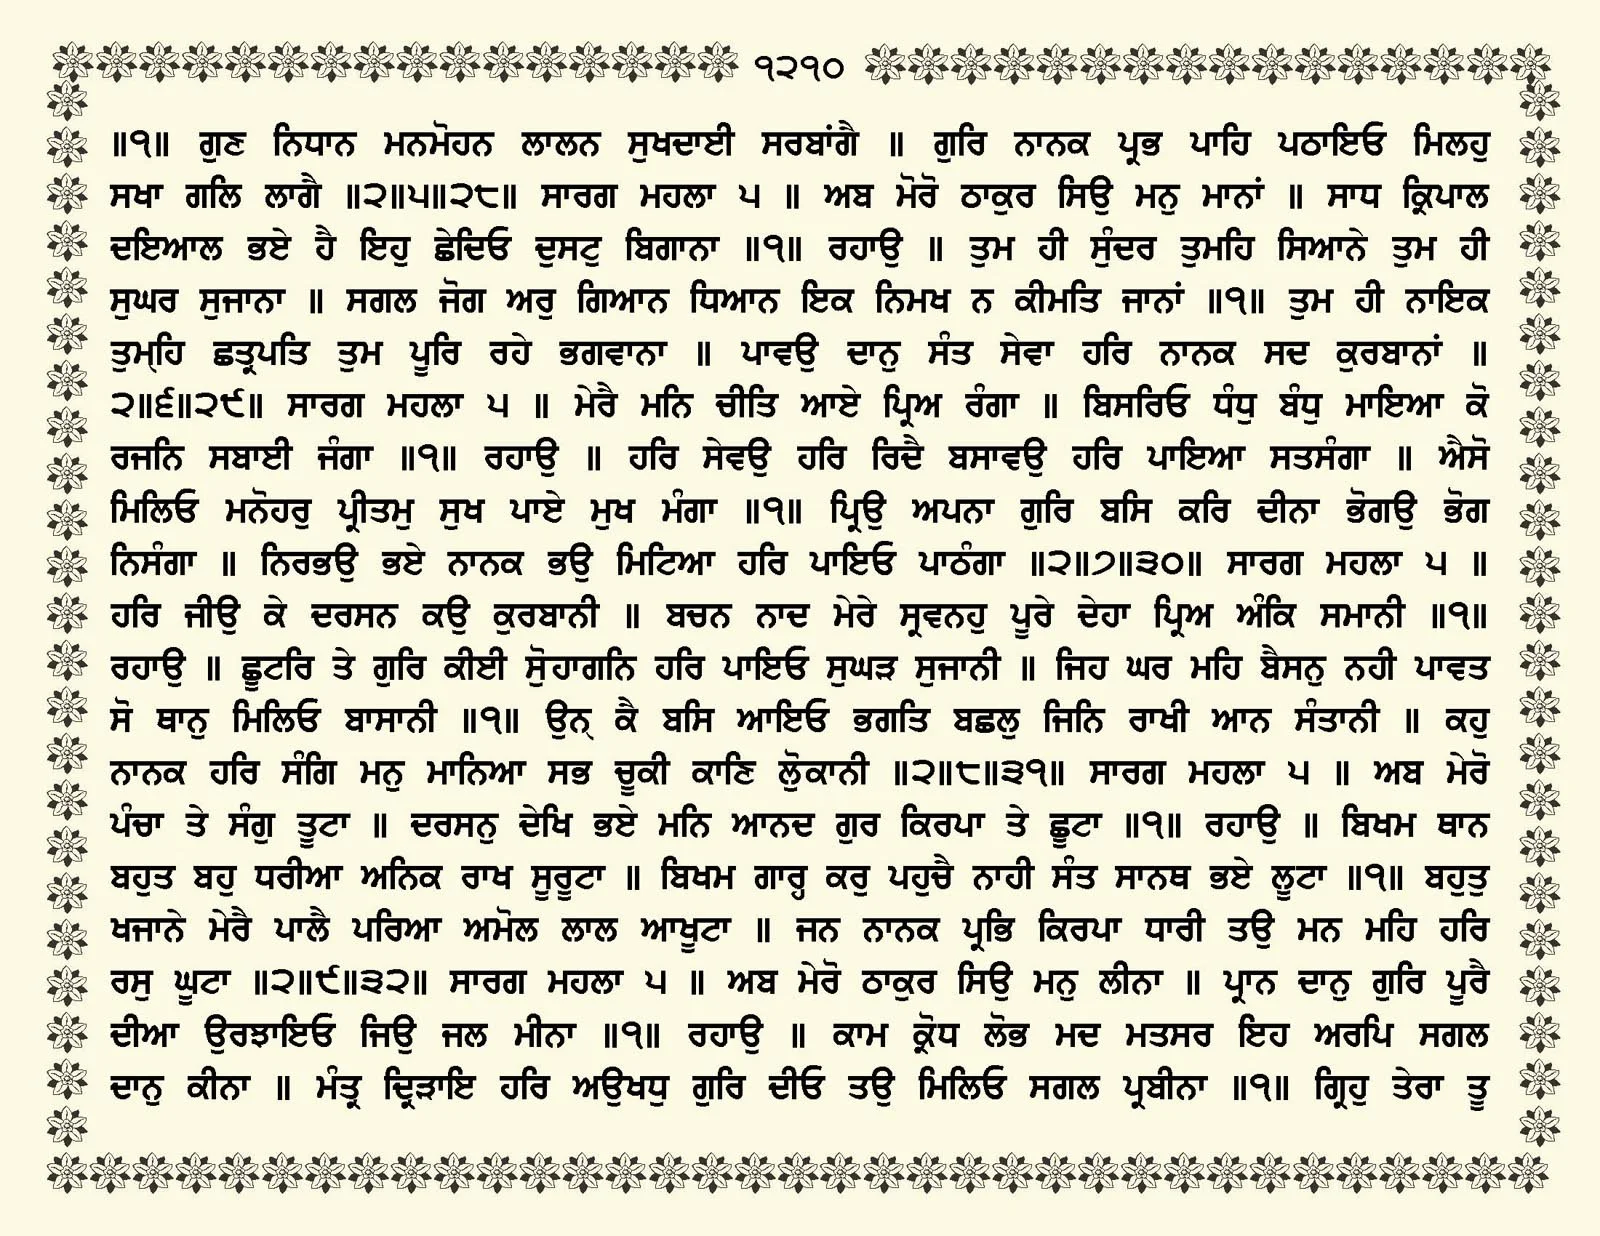 ੧੨੧੦
॥੧॥ ਗੁਣ ਨਿਧਾਨ ਮਨਮੋਹਨ ਲਾਲਨ ਸੁਖਦਾਈ ਸਰਬਾਂਗੈ ॥ ਗੁਰਿ ਨਾਨਕ ਪ੍ਰਭ ਪਾਹਿ ਪਠਾਇਓ ਮਿਲਹੁ
ਸਖਾ ਗਲਿ ਲਾਗੈ ॥੨॥੫॥੨੮॥ ਸਾਰਗ ਮਹਲਾ ੫ ॥ ਅਬ ਮੋਰੋ ਠਾਕੁਰ ਸਿਉ ਮਨੁ ਮਾਨਾਂ ॥ ਸਾਧ ਕ੍ਰਿਪਾਲ
ਦਇਆਲ ਭਏ ਹੈ ਇਹੁ ਛੇਦਿਓ ਦੁਸਟੁ ਬਿਗਾਨਾ ॥੧॥ ਰਹਾਉ ॥ ਤੁਮ ਹੀ ਸੁੰਦਰ ਤੁਮਹਿ ਸਿਆਨੇ ਤੁਮ ਹੀ
ਸੁਘਰ ਸੁਜਾਨਾ ॥ ਸਗਲ ਜੋਗ ਅਰੁ ਗਿਆਨ ਧਿਆਨ ਇਕ ਨਿਮਖ ਨ ਕੀਮਤਿ ਜਾਨਾਂ ॥੧॥ ਤੁਮ ਹੀ ਨਾਇਕ
ਤੁਮ੍ਹਿ ਛਤ੍ਰਪਤਿ ਤੁਮ ਪੂਰਿ ਰਹੇ ਭਗਵਾਨਾ ॥ ਪਾਵਉ ਦਾਨੁ ਸੰਤ ਸੇਵਾ ਹਰਿ ਨਾਨਕ ਸਦ ਕੁਰਬਾਨਾਂ ॥
੨॥੬॥੨੯॥ ਸਾਰਗ ਮਹਲਾ ੫ ॥ ਮੇਰੈ ਮਨਿ ਚੀਤਿ ਆਏ ਪ੍ਰਿਅ ਰੰਗਾ ॥ ਬਿਸਰਿਓ ਧੰਧੁ ਬੰਧੁ ਮਾਇਆ ਕੋ
ਰਜਨਿ ਸਬਾਈ ਜੰਗਾ ॥੧॥ ਰਹਾਉ ॥ ਹਰਿ ਸੇਵਉ ਹਰਿ ਰਿਦੈ ਬਸਾਵਉ ਹਰਿ ਪਾਇਆ ਸਤਸੰਗਾ ॥ ਐਸੋ
ਮਿਲਿਓ ਮਨੋਹਰੁ ਪ੍ਰੀਤਮੁ ਸੁਖ ਪਾਏ ਮੁਖ ਮੰਗਾ ॥੧॥ ਪ੍ਰਿਉ ਅਪਨਾ ਗੁਰਿ ਬਸਿ ਕਰਿ ਦੀਨਾ ਭੋਗਉ ਭੋਗ
ਨਿਸੰਗਾ ॥ ਨਿਰਭਉ ਭਏ ਨਾਨਕ ਭਉ ਮਿਟਿਆ ਹਰਿ ਪਾਇਓ ਪਾਠੰਗਾ ॥੨॥੭॥੩੦॥ ਸਾਰਗ ਮਹਲਾ ੫ ॥
ਹਰਿ ਜੀਉ ਕੇ ਦਰਸਨ ਕਉ ਕੁਰਬਾਨੀ ॥ ਬਚਨ ਨਾਦ ਮੇਰੇ ਸ੍ਰਵਨਹੁ ਪੂਰੇ ਦੇਹਾ ਪ੍ਰਿਅ ਅੰਕਿ ਸਮਾਨੀ ॥੧॥
ਰਹਾਉ ॥ ਛੂਟਰਿ ਤੇ ਗੁਰਿ ਕੀਈ ਸੋੁਹਾਗਨਿ ਹਰਿ ਪਾਇਓ ਸੁਘੜ ਸੁਜਾਨੀ ॥ ਜਿਹ ਘਰ ਮਹਿ ਬੈਸਨੁ ਨਹੀ ਪਾਵਤ
ਸੋ ਥਾਨੁ ਮਿਲਿਓ ਬਾਸਾਨੀ ॥੧॥ ਉਨ੍ ਕੈ ਬਸਿ ਆਇਓ ਭਗਤਿ ਬਛਲੁ ਜਿਨਿ ਰਾਖੀ ਆਨ ਸੰਤਾਨੀ ॥ ਕਹੁ
ਨਾਨਕ ਹਰਿ ਸੰਗਿ ਮਨੁ ਮਾਨਿਆ ਸਭ ਚੂਕੀ ਕਾਣਿ ਲੋੁਕਾਨੀ ॥੨॥੮॥੩੧॥ ਸਾਰਗ ਮਹਲਾ ੫ ॥ ਅਬ ਮੇਰੋ
ਪੰਚਾ ਤੇ ਸੰਗੁ ਤੂਟਾ ॥ ਦਰਸਨੁ ਦੇਖਿ ਭਏ ਮਨਿ ਆਨਦ ਗੁਰ ਕਿਰਪਾ ਤੇ ਛੂਟਾ ॥੧॥ ਰਹਾਉ ॥ ਬਿਖਮ ਥਾਨ
ਬਹੁਤ ਬਹੁ ਧਰੀਆ ਅਨਿਕ ਰਾਖ ਸੂਰੂਟਾ ॥ ਬਿਖਮ ਗਾਰ੍ਹ ਕਰੁ ਪਹੁਚੈ ਨਾਹੀ ਸੰਤ ਸਾਨਥ ਭਏ ਲੂਟਾ ॥੧॥ ਬਹੁਤੁ
ਖਜਾਨੇ ਮੇਰੈ ਪਾਲੈ ਪਰਿਆ ਅਮੋਲ ਲਾਲ ਆਖੂਟਾ ॥ ਜਨ ਨਾਨਕ ਪ੍ਰਭਿ ਕਿਰਪਾ ਧਾਰੀ ਤਉ ਮਨ ਮਹਿ ਹਰਿ
ਰਸੁ ਘੂਟਾ ॥੨॥੯॥੩੨॥ ਸਾਰਗ ਮਹਲਾ ੫ ॥ ਅਬ ਮੇਰੋ ਠਾਕੁਰ ਸਿਉ ਮਨੁ ਲੀਨਾ ॥ ਪ੍ਰਾਨ ਦਾਨੁ ਗੁਰਿ ਪੂਰੈ
ਦੀਆ ਉਰਝਾਇਓ ਜਿਉ ਜਲ ਮੀਨਾ ॥੧॥ ਰਹਾਉ ॥ ਕਾਮ ਕ੍ਰੋਧ ਲੋਭ ਮਦ ਮਤਸਰ ਇਹ ਅਰਪਿ ਸਗਲ
ਦਾਨੁ ਕੀਨਾ ॥ ਮੰਤ੍ਰ ਦ੍ਰਿੜਾਇ ਹਰਿ ਅਉਖਧੁ ਗੁਰਿ ਦੀਓ ਤਉ ਮਿਲਿਓ ਸਗਲ ਪ੍ਰਬੀਨਾ ॥੧॥ ਗ੍ਰਿਹੁ ਤੇਰਾ ਤੂ